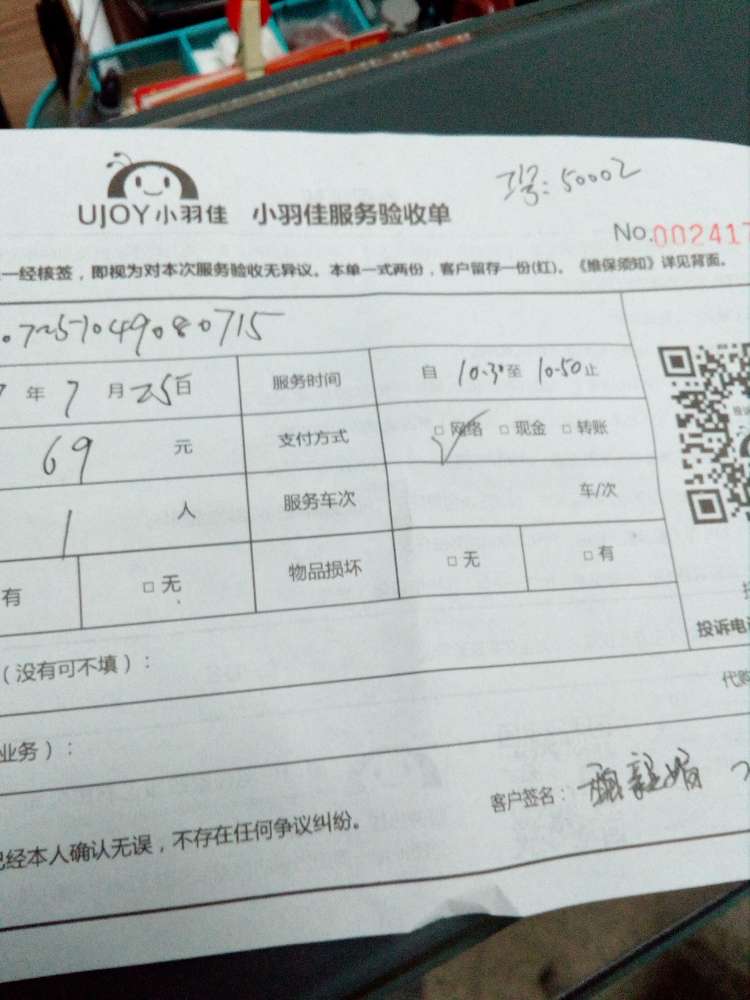 工号:50002
UJOY小羽佳 小羽佳服务验收单
No.002417
一经核签，即视为对本次服务验收无异议。本单一式两份，客户留存一份(红)。《维保须知》详见背面。
年 7 月 25 日 服务时间 自 10.30 至 10.50 止
69 元 支付方式 □网络 □现金 □转账
1 人 服务车次 车/次
有 □无 物品损坏 □无 □有
投诉电
（没有可不填）：
代购
业务）：
客户签名：
已经本人确认无误，不存在任何争议纠纷。